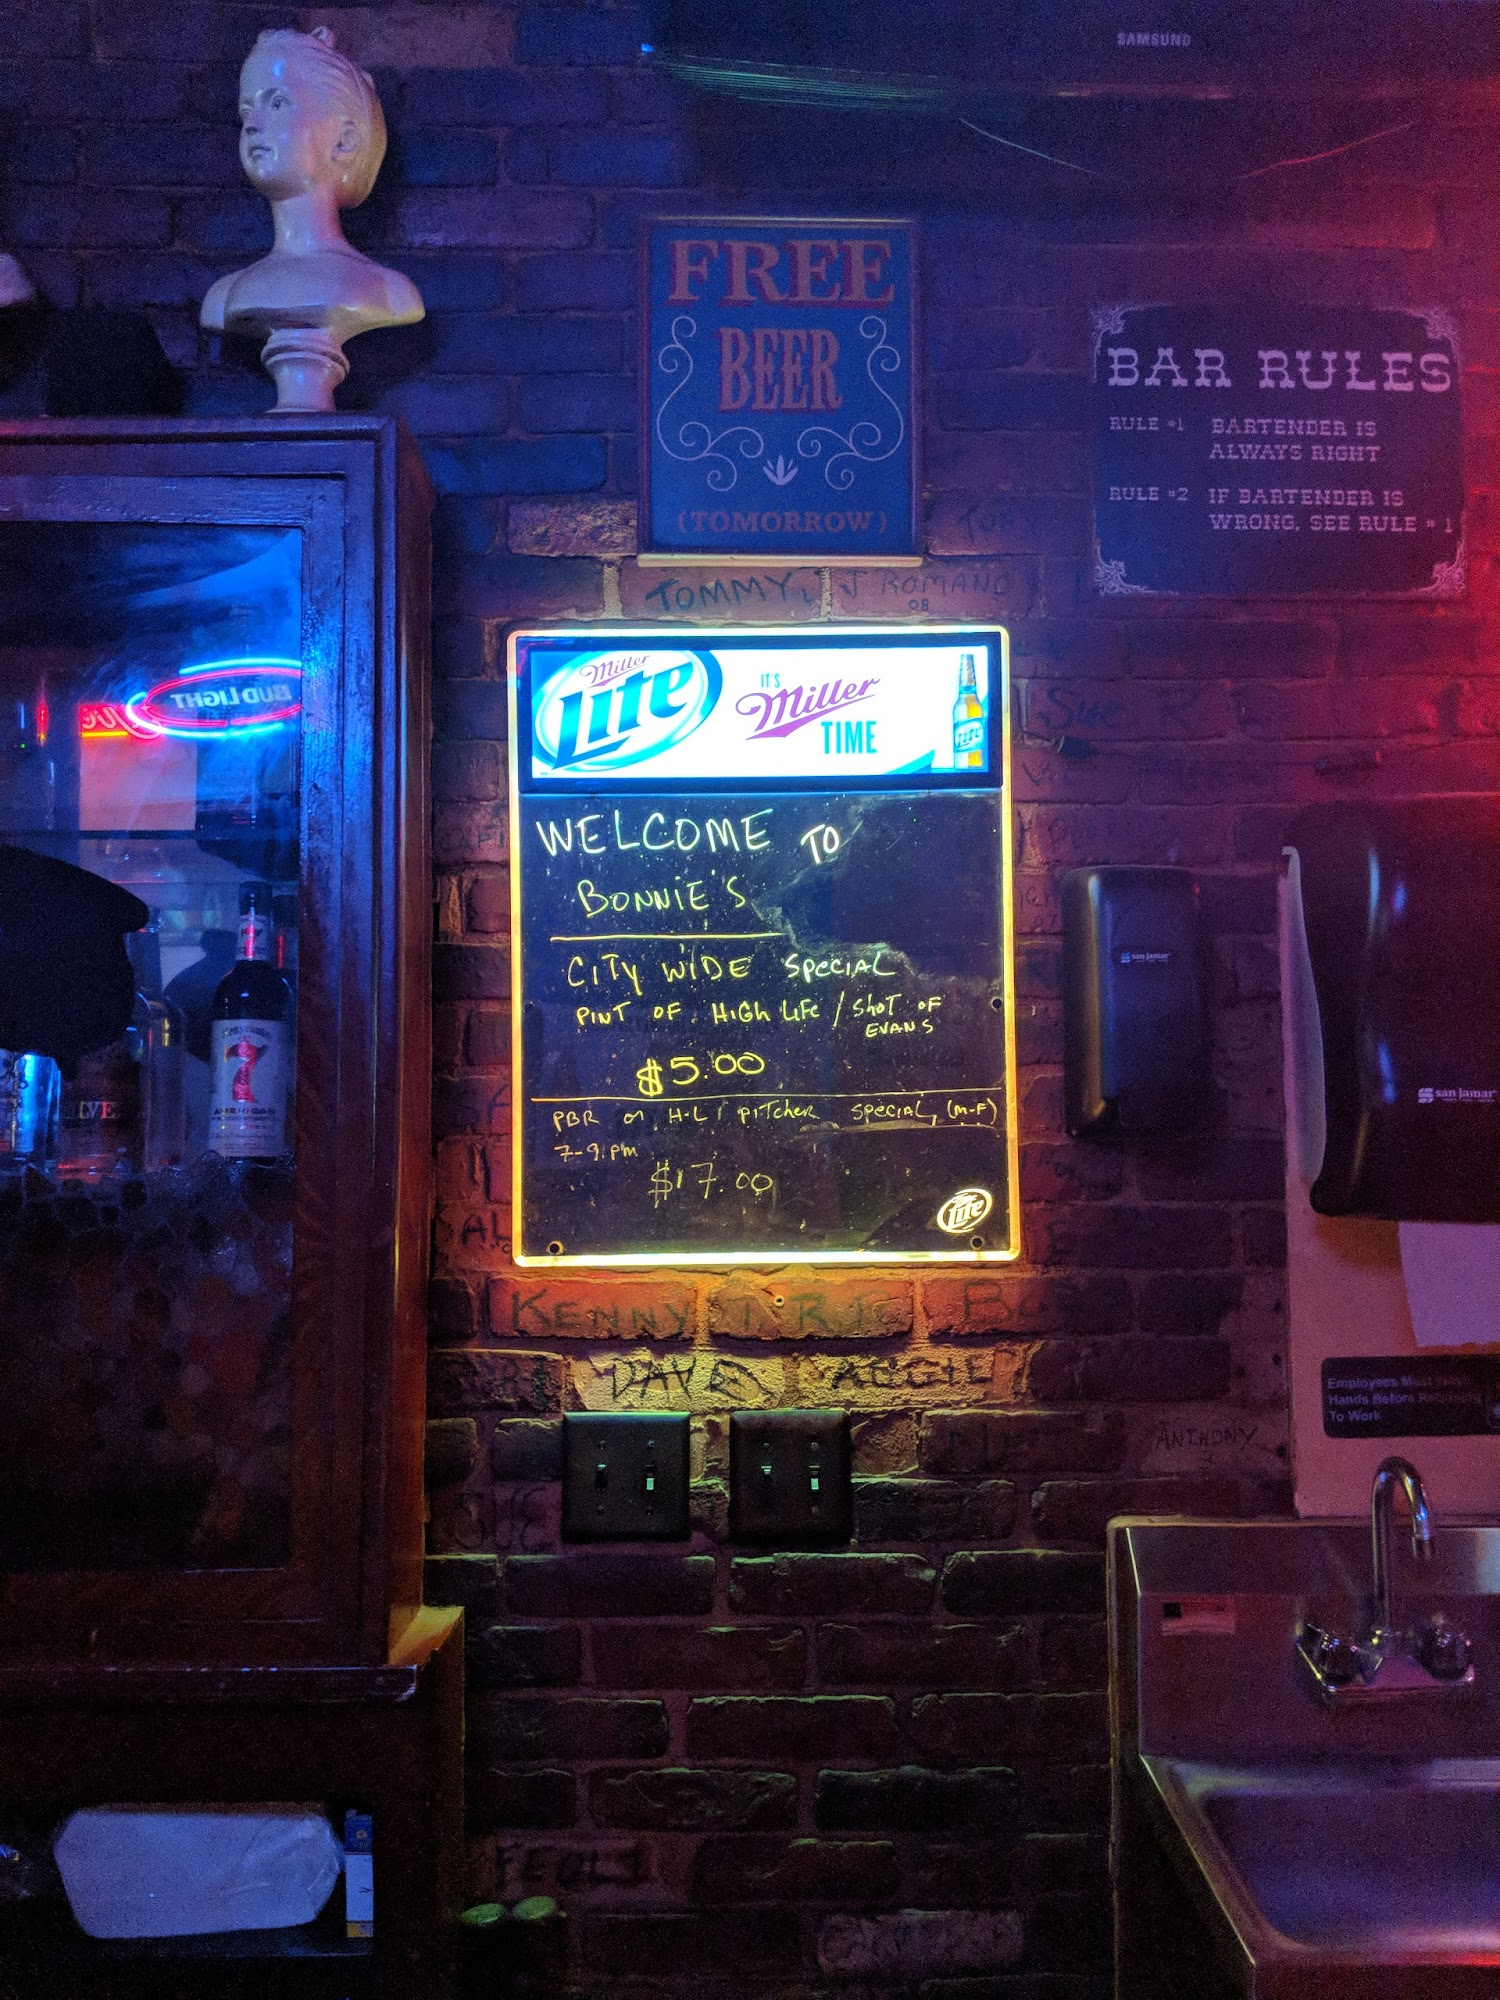 SAMSUNG
FREE
BEER
(TOMORROW)
BAR RULES
RULE #1 BARTENDER IS
ALWAYS RIGHT
RULE #2 IF BARTENDER IS
WRONG, SEE RULE #1
TOMMY J ROMANO
OB
Miller
Lite
IT'S
Miller
TIME
BUD LIGHT
WELCOME TO
BONNIE'S
CITY WIDE SPECIAL
PINT OF HIGH LIFE / SHOT OF
EVANS
$5.00
PBR or H-L PITCHER SPECIAL, (M-F)
7-9 PM
$17.00
Lite
san jamar
san jamar
7
AMERICAN
KENNY
DAVE AGGIE
ANTHONY
Employees Must
Hands Before
To Work
FEOLI